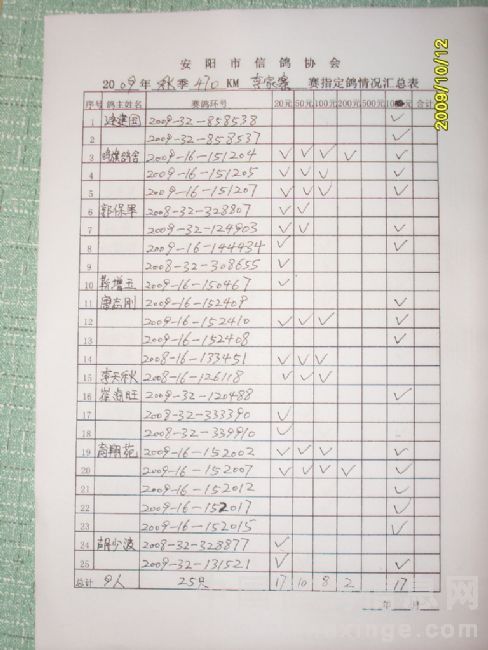 安阳市信鸽协会
2009年秋季470KM 赛指定鸽情况汇总表
序号 鸽主姓名 赛鸽环号 20元 50元 100元 200元 500元 10 元 合计
1 2009-32-858538 ✓
2 2009-32-858537 ✓
3 2009-16-151204 ✓ ✓ ✓ ✓ ✓
4 2009-16-151205 ✓ ✓ ✓ ✓
5 2009-16-151207 ✓ ✓ ✓ ✓
6 郭保军 2008-32-328807 ✓ ✓
7 2009-32-124903 ✓ ✓ ✓
8 2009-16-144434 ✓ ✓
9 2008-32-308655 ✓
10 靳增五 2009-16-150467 ✓
11 唐志刚 2009-16-152409 ✓
12 2009-16-152410 ✓ ✓ ✓ ✓
13 2009-16-152408 ✓
14 2008-16-133451 ✓ ✓ ✓
15 李天秋 2008-16-126118 ✓ ✓ ✓
16 2009-32-120488 ✓
17 2008-32-333390 ✓
18 2008-32-339910 ✓
19 高翔苑 2009-16-152002 ✓ ✓ ✓ ✓
20 2009-16-152007 ✓ ✓ ✓ ✓ ✓
21 2009-16-152012 ✓
22 2009-16-152017 ✓
23 2009-16-152015 ✓
24 胡少波 2008-32-328877 ✓
25 2009-32-131521 ✓ ✓
总计 9人 25只 17 10 8 2 17
年 月
2009/10/12